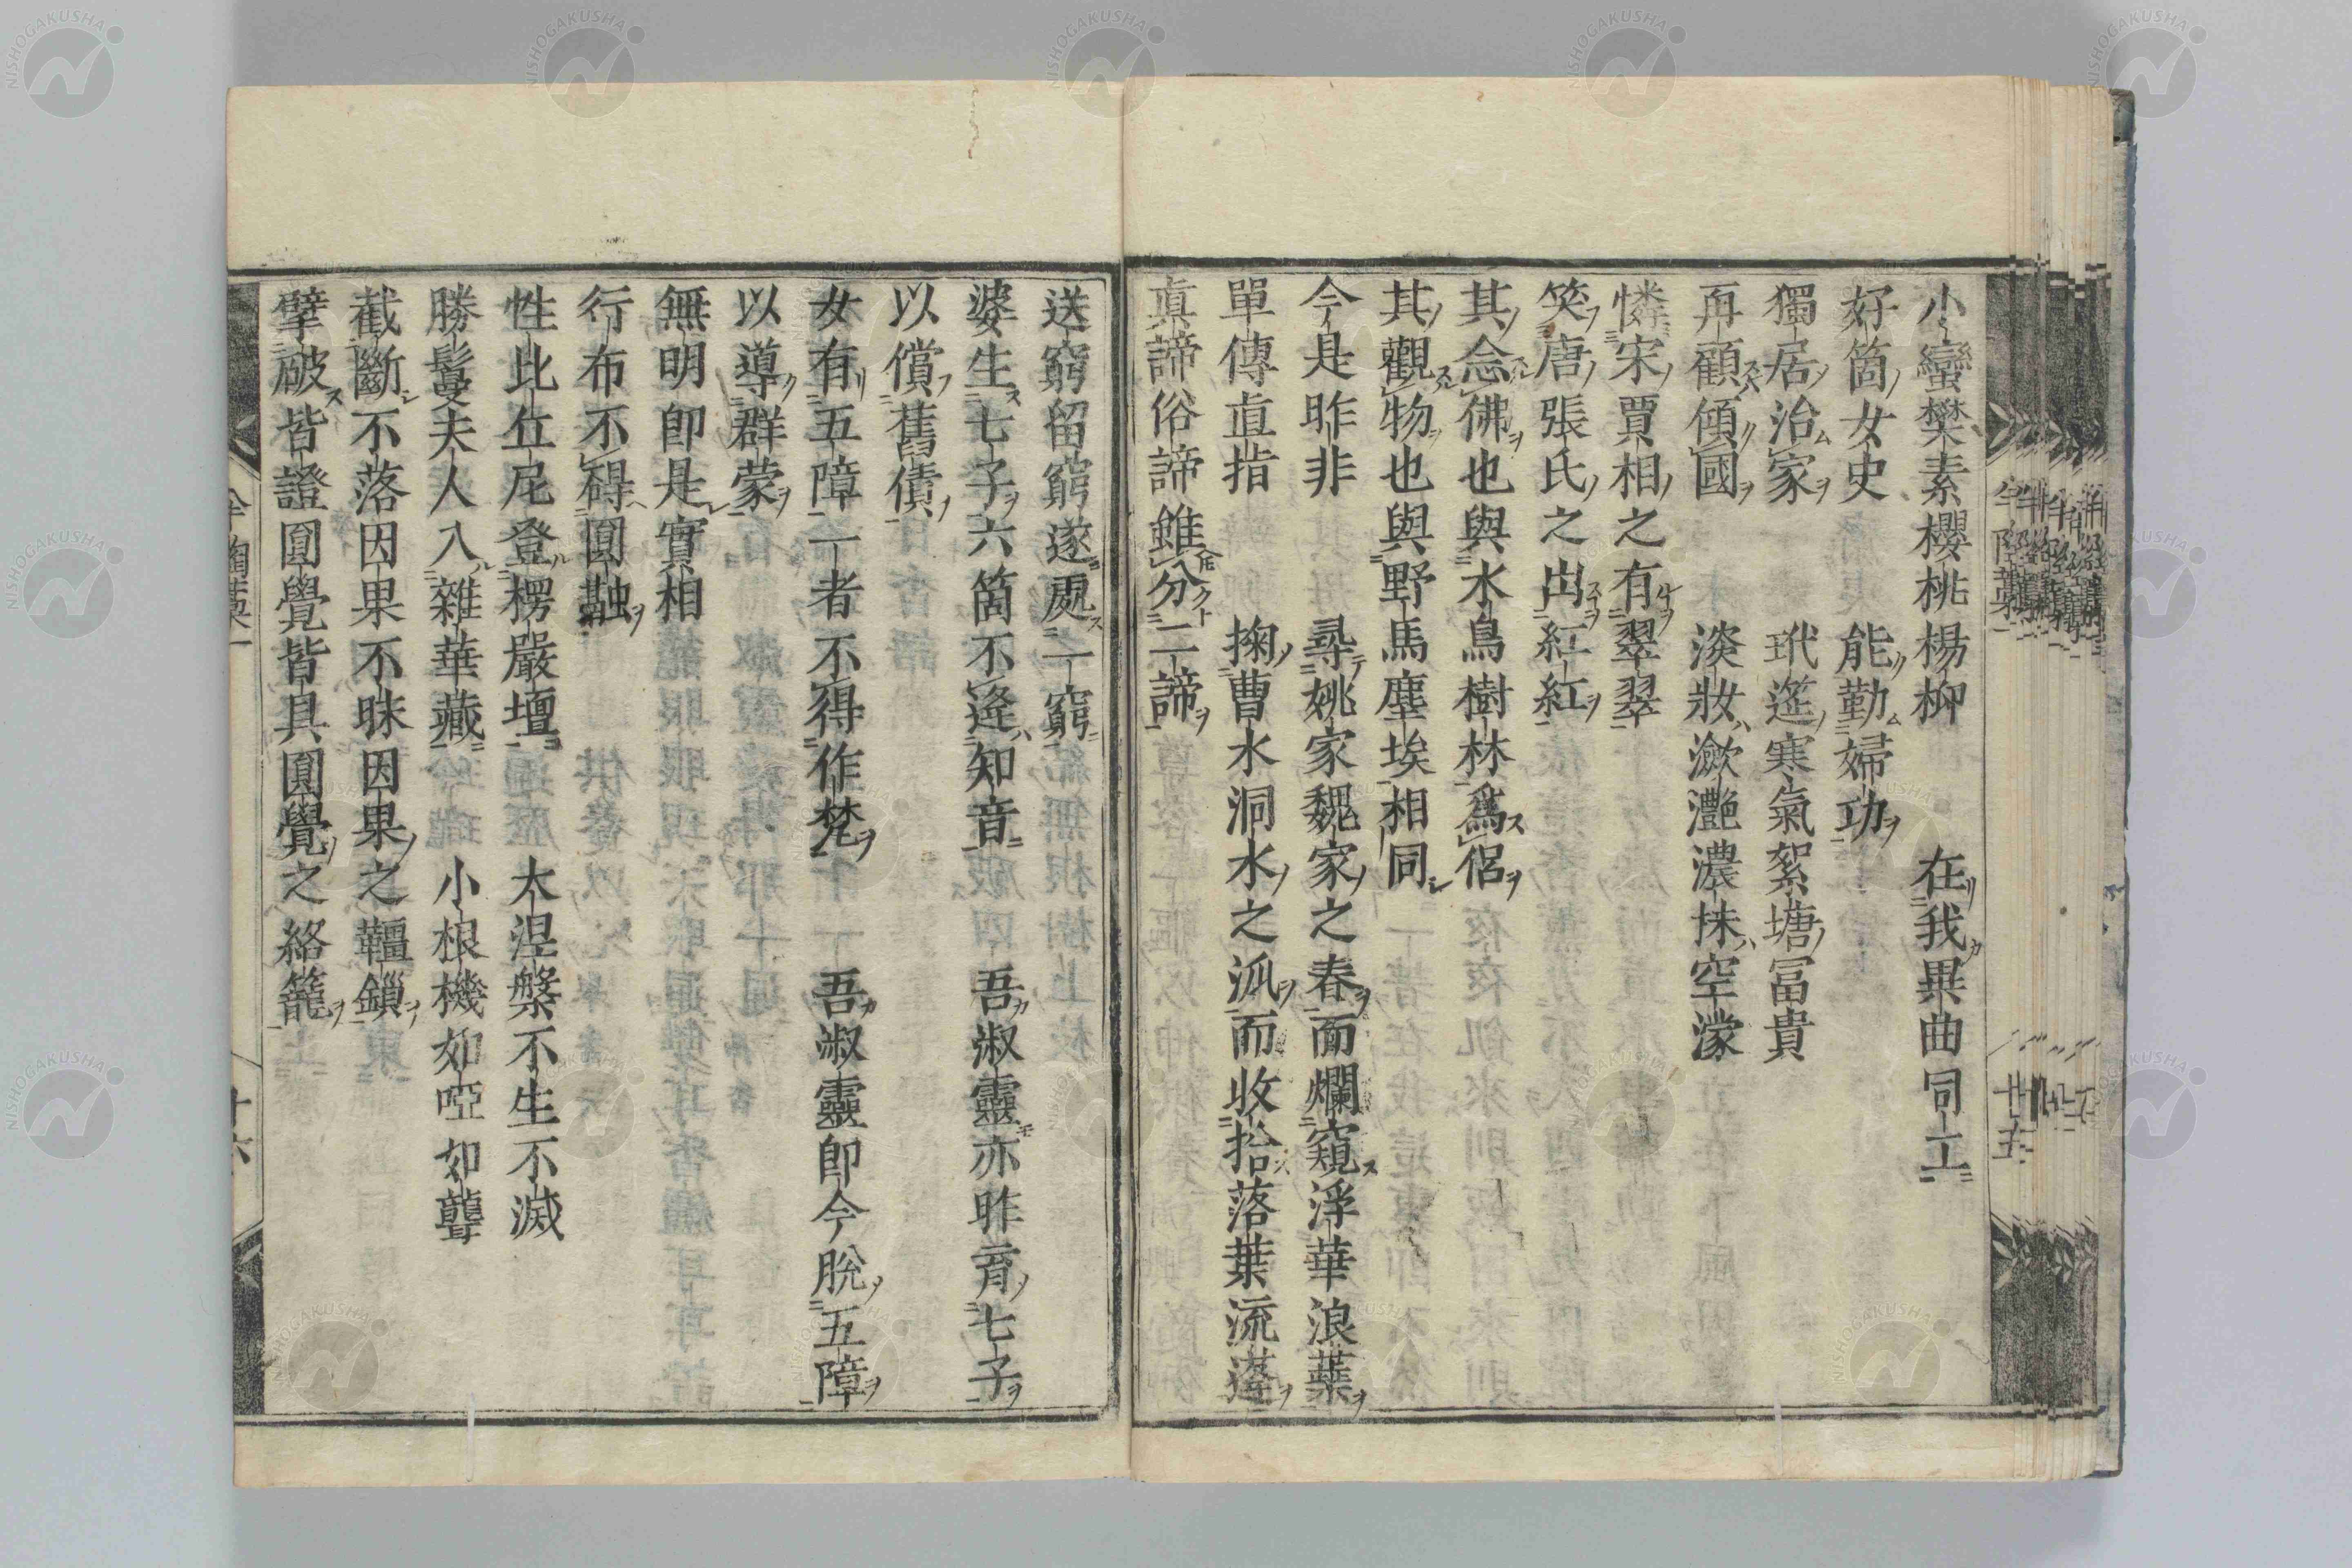 小蠻樊素櫻桃楊柳　在我異曲同工
好箇女史　能勤婦功
獨居治家　玳筵寒氣絮塘冨貴
再顧傾國　淡妝瀲灧濃抹空濛
憐宋賈相之有翠翠
笑唐張氏之出紅紅
其念佛也與水鳥樹林爲侶
其觀物也與野馬塵埃相同
今是昨非　尋姚家魏家之春而爛窺浮華浪蘂
單傳直指　掬曹水洞水之派而收拾落葉流蓬
真諦俗諦雖分二諦
送窮留窮遂處一窮
婆生七子六箇不逢知音　吾淑靈亦昨育七子
以償舊債
女有五障一者不得作梵　吾淑靈即今脫五障
以導群蒙
無明即是實相
行布不碍圓融
性比丘尼登楞嚴壇　大涅槃不生不滅
勝鬘夫人入雜華藏　小根機如啞如聾
截斷不落因果不昧因果之韁鎖
擘破皆證圓覺皆具圓覺之絡籠
十六